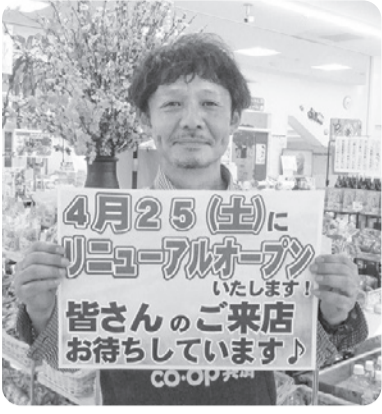 4月25(土)に
リニューアルオープン
いたします！
皆さんのご来店
お待ちしています♪
co·op